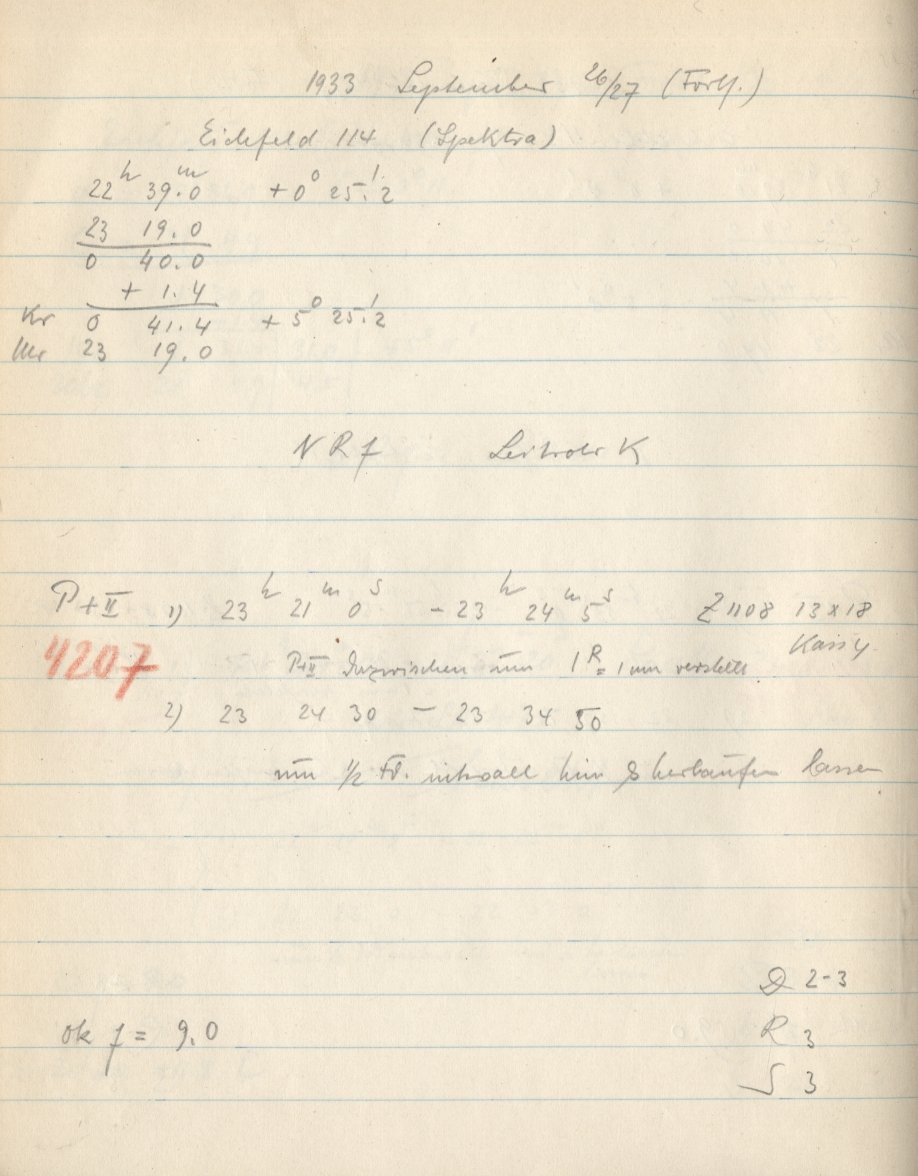 1933 September 26/27 (Forts.)
Eichfeld 114 (Spektra)
22ʰ 39.ᵐ0 + 0° 25.'2
23 19.0
0 40.0
+ 1.4
Kr 0 41.4 + 5° 25.'2
Uhr 23 19.0
N R f Leitrohr K
P+II 1) 23ʰ 21ᵐ 0ˢ - 23ʰ 24ᵐ 5ˢ Z 1108 13 x 18
4207 Kass 4
P+II Dazwischen um 1 R = 1 mm verstellt
2) 23 24 30 - 23 34 50
um 1/2 Fd. intervall hin & herlaufen lassen
D 2-3
ok f = 9.0 R 3
S 3